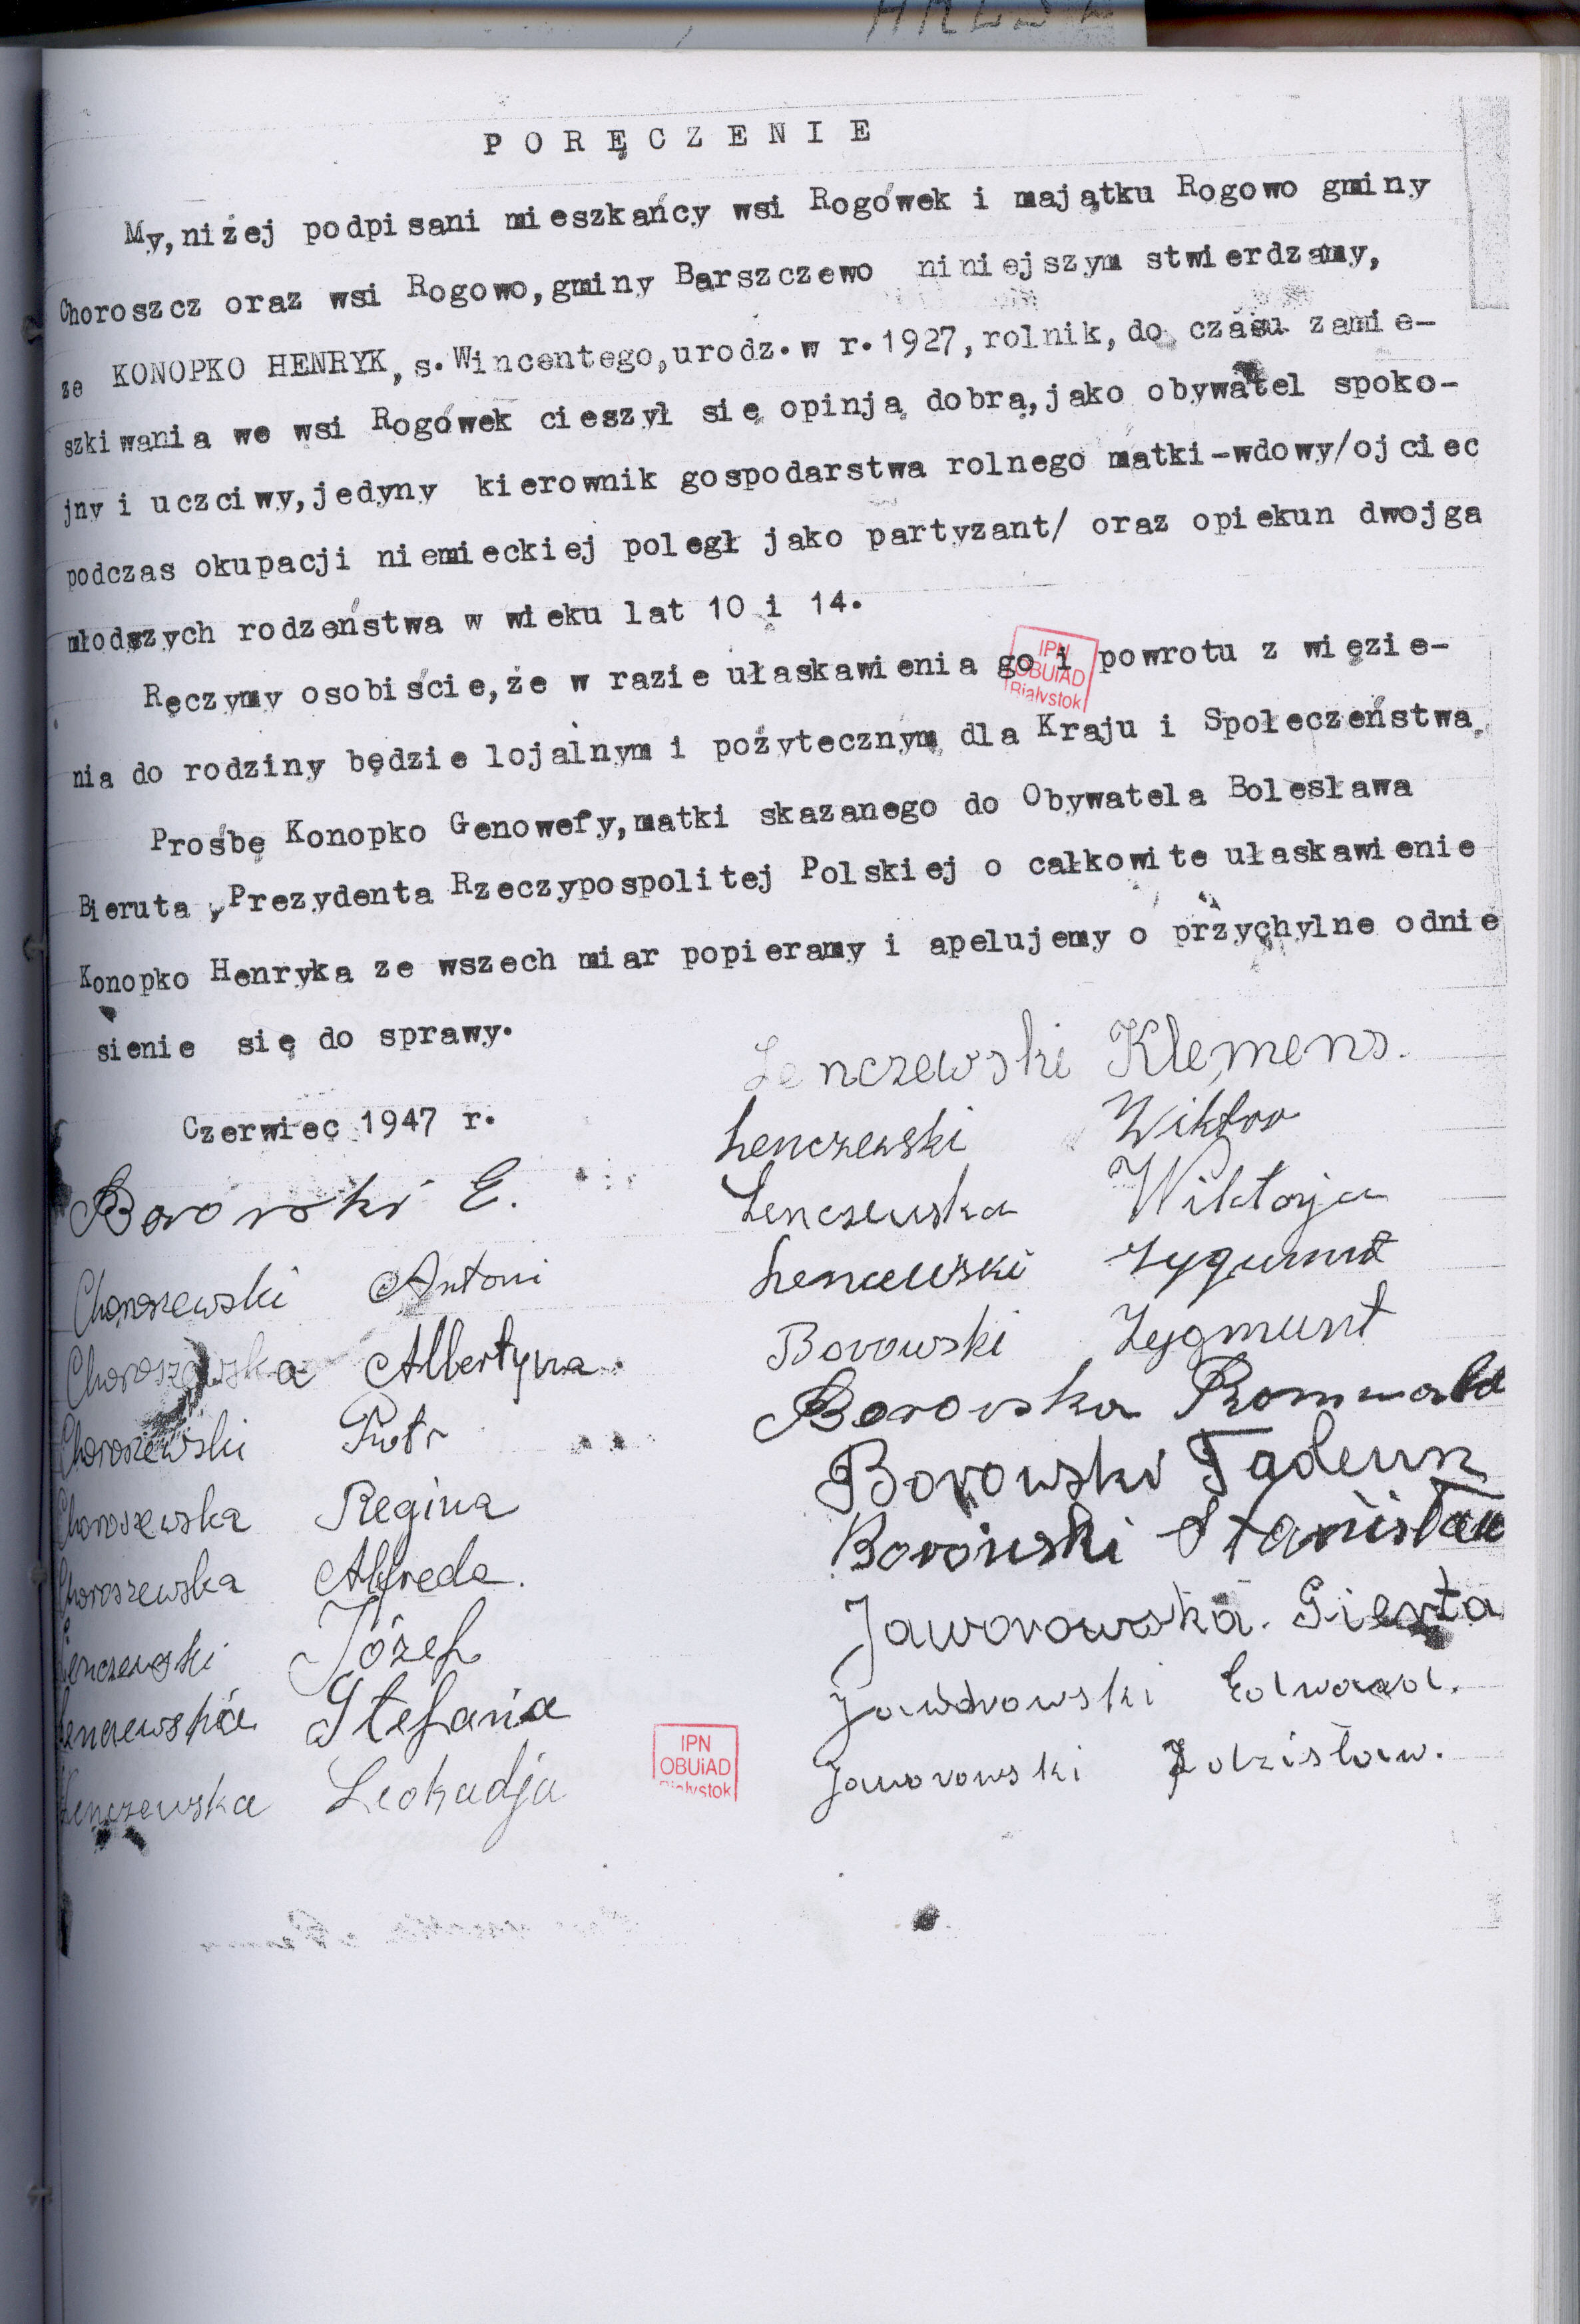 PORĘCZENIE
My,niżej podpisani mieszkańcy wsi Rogówek i majątku Rogowo gminy
Choroszcz oraz wsi Rogowo,gminy Barszczewo niniejszym stwierdzamy,
ze KONOPKO HENRYK, s.Wincentego,urodz.w r.1927,rolnik,do czasu zamie-
szkiwania we wsi Rogówek cieszył się opinją dobrą,jako obywatel spoko-
jny i uczciwy,jedyny kierownik gospodarstwa rolnego matki-wdowy/ojciec
podczas okupacji niemieckiej poległ jako partyzant/ oraz opiekun dwojga
młodszych rodzeństwa w wieku lat 10 i 14.
Ręczymy osobiście,że w razie ułaskawienia go i powrotu z więzie-
nia do rodziny będzie lojalnym i pożytecznym dla Kraju i Społeczeństwa.
Prośbę Konopko Genowefy,matki skazanego do Obywatela Bolesława
Bieruta,Prezydenta Rzeczypospolitej Polskiej o całkowite ułaskawienie
Konopko Henryka ze wszech miar popieramy i apelujemy o przychylne odnie
sienie się do sprawy.
Czerwiec 1947 r.
Borowski E.
Choroszewski Antoni
Choroszewska Albertyna
Choroszewski Piotr
Choroszewska Regina
Choroszewska Alfreda.
Lenczewski Józef
Lenczewska Stefania
Lenczewska Leokadja
Lenczewski Klemens.
Lenczewski Wiktor
Lenczewska Wiktorja
Lenczewski Zygmunt
Borowski Zygmunt
Borowska Romualda
Borowski Tadeusz
Borowski Stanisław
Jaworowska. Gienta
Jaworowski Edward.
Jaworowski Zdzisław.
IPN
OBUiAD
Białystok
IPN
OBUiAD
Białystok